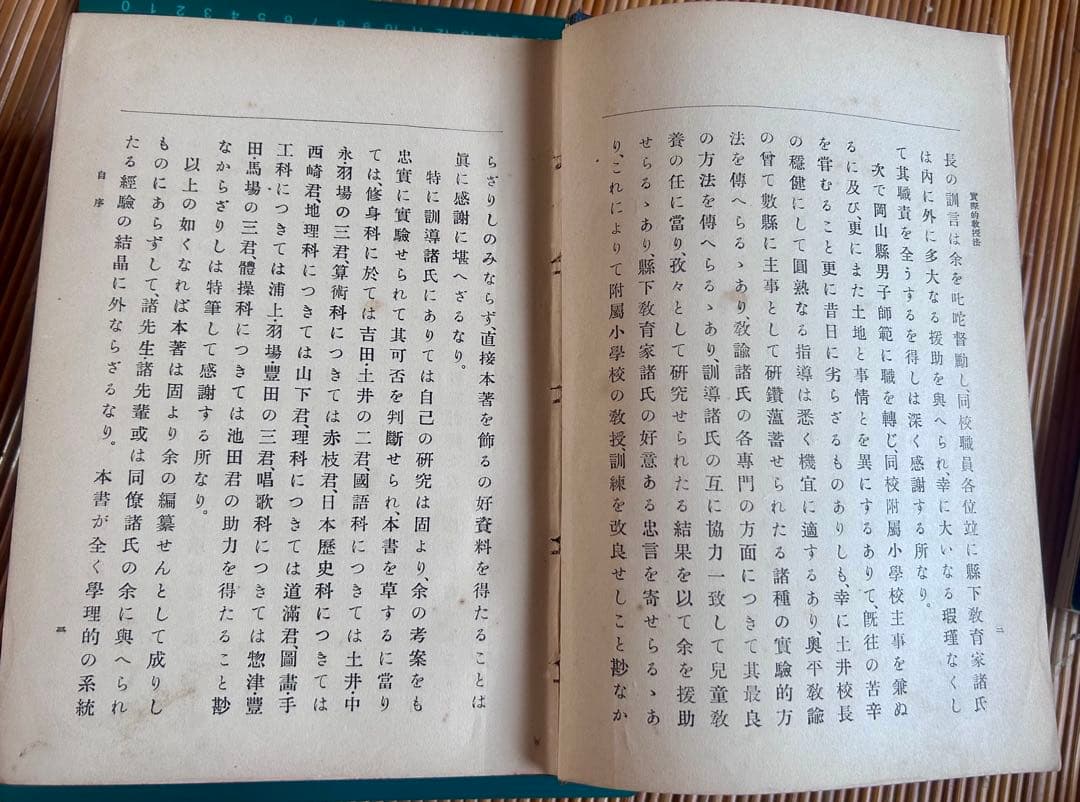 實際的教授法
二
長の訓言は余を叱咤督勵し同校職員各位並に縣下敎育家諸氏
は內に外に多大なる援助を與へられ、幸に大いなる瑕瑾なくし
て其職責を全うするを得しは深く感謝する所なり。
次で岡山縣男子師範に職を轉じ、同校附屬小學校主事を兼ぬ
るに及び、更にまた土地と事情とを異にするありて、旣往の苦辛
を甞むること更に昔日に劣らざるものありしも、幸に土井校長
の穩健にして圓熟なる指導は悉く機宜に適するあり、奧平敎諭
の曾て數縣に主事として硏鑽薀蓄せられたる諸種の實驗的方
法を傳へらるゝあり、敎諭諸氏の各專門の方面につきて其最良
の方法を傳へらるゝあり、訓導諸氏の互に協力一致して兒童敎
養の任に當り、孜々として硏究せられたる結果を以て余を援助
せらるゝあり、縣下敎育家諸氏の好意ある忠言を寄せらるゝあ
り、これによりて附屬小學校の敎授、訓練を改良せしこと尠なか
らざりしのみならず、直接本著を飾るの好資料を得たることは
眞に感謝に堪へざるなり。
特に訓導諸氏にありては自己の硏究は固より、余の考案をも
忠實に實驗せられて其可否を判斷せられ、本書を草するに當り
ては、修身科に於ては吉田・土井の二君、國語科につきては土井・中
永・羽場の三君、算術科につきては赤枝君、日本歷史科につきては
西崎君、地理科につきては山下君、理科につきては道滿君、圖畵・手
工科につきては浦上・羽場・豐田の三君、唱歌科につきては惣津・豐
田・馬場の三君、體操科につきては池田君の助力を得たること尠
なからざりしは特筆して感謝する所なり。
以上の如くなれば本著は固より余の編纂せんとして成りし
ものにあらずして、諸先生諸先輩或は同僚諸氏の余に與へられ
たる經驗の結晶に外ならざるなり。　本書が全く學理的の系統
自序
三